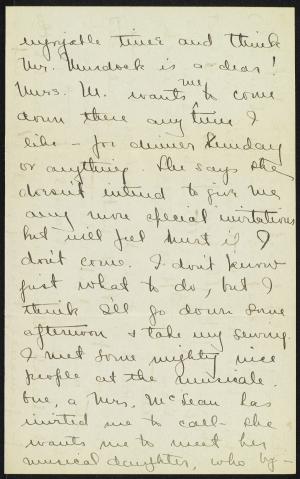 enjoyable time and think
Mr. Murdock is a dear!
Mrs. M. wants me to come
down there any time I
like - for dinner Sunday
or anything. She says she
doesn't intend to give me
any more special invitations
but will feel hurt if I
don't come. I don't know
just what to do, but I
think I'll go down some
afternoon & take my sewing.
I met some mighty nice
people at the musicale.
One, a Mrs. McLean has
invited me to call - she
wants me to meet her
musical daughter, who by -